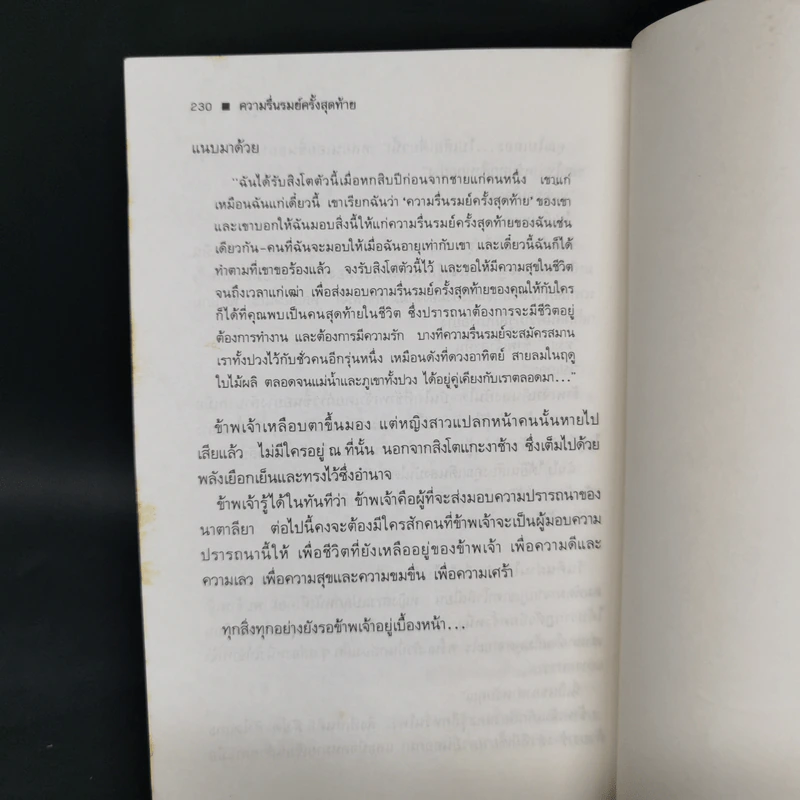 230 ■ ความรื่นรมย์ครั้งสุดท้าย
แนบมาด้วย
"ฉันได้รับสิงโตตัวนี้เมื่อหกสิบปีก่อนจากชายแก่คนหนึ่ง เขาแก่
เหมือนฉันแก่เดี๋ยวนี้ เขาเรียกฉันว่า 'ความรื่นรมย์ครั้งสุดท้าย' ของเขา
และเขาบอกให้ฉันมอบสิ่งนี้ให้แก่ความรื่นรมย์ครั้งสุดท้ายของฉันเช่น
เดียวกัน-คนที่ฉันจะมอบให้เมื่อฉันอายุเท่ากับเขา และเดี๋ยวนี้ฉันก็ได้
ทำตามที่เขาขอร้องแล้ว จงรับสิงโตตัวนี้ไว้ และขอให้มีความสุขในชีวิต
จนถึงเวลาแก่เฒ่า เพื่อส่งมอบความรื่นรมย์ครั้งสุดท้ายของคุณให้กับใคร
ก็ได้ที่คุณพบเป็นคนสุดท้ายในชีวิต ซึ่งปรารถนาต้องการจะมีชีวิตอยู่
ต้องการทำงาน และต้องการมีความรัก บางทีความรื่นรมย์จะสมัครสมาน
เราทั้งปวงไว้กับชั่วคนอีกรุ่นหนึ่ง เหมือนดังที่ดวงอาทิตย์ สายลมในฤดู
ใบไม้ผลิ ตลอดจนแม่น้ำและภูเขาทั้งปวง ได้อยู่คู่เคียงกับเราตลอดมา..."
ข้าพเจ้าเหลือบตาขึ้นมอง แต่หญิงสาวแปลกหน้าคนนั้นหายไป
เสียแล้ว ไม่มีใครอยู่ ณ ที่นั้น นอกจากสิงโตแกะงาช้าง ซึ่งเต็มไปด้วย
พลังเยือกเย็นและทรงไว้ซึ่งอำนาจ
ข้าพเจ้ารู้ได้ในทันทีว่า ข้าพเจ้าคือผู้ที่จะส่งมอบความปรารถนาของ
นาตาลียา ต่อไปนี้คงจะต้องมีใครสักคนที่ข้าพเจ้าจะเป็นผู้มอบความ
ปรารถนานี้ให้ เพื่อชีวิตที่ยังเหลืออยู่ของข้าพเจ้า เพื่อความดีและ
ความเลว เพื่อความสุขและความขมขื่น เพื่อความเศร้า
ทุกสิ่งทุกอย่างยังรอข้าพเจ้าอยู่เบื้องหน้า...